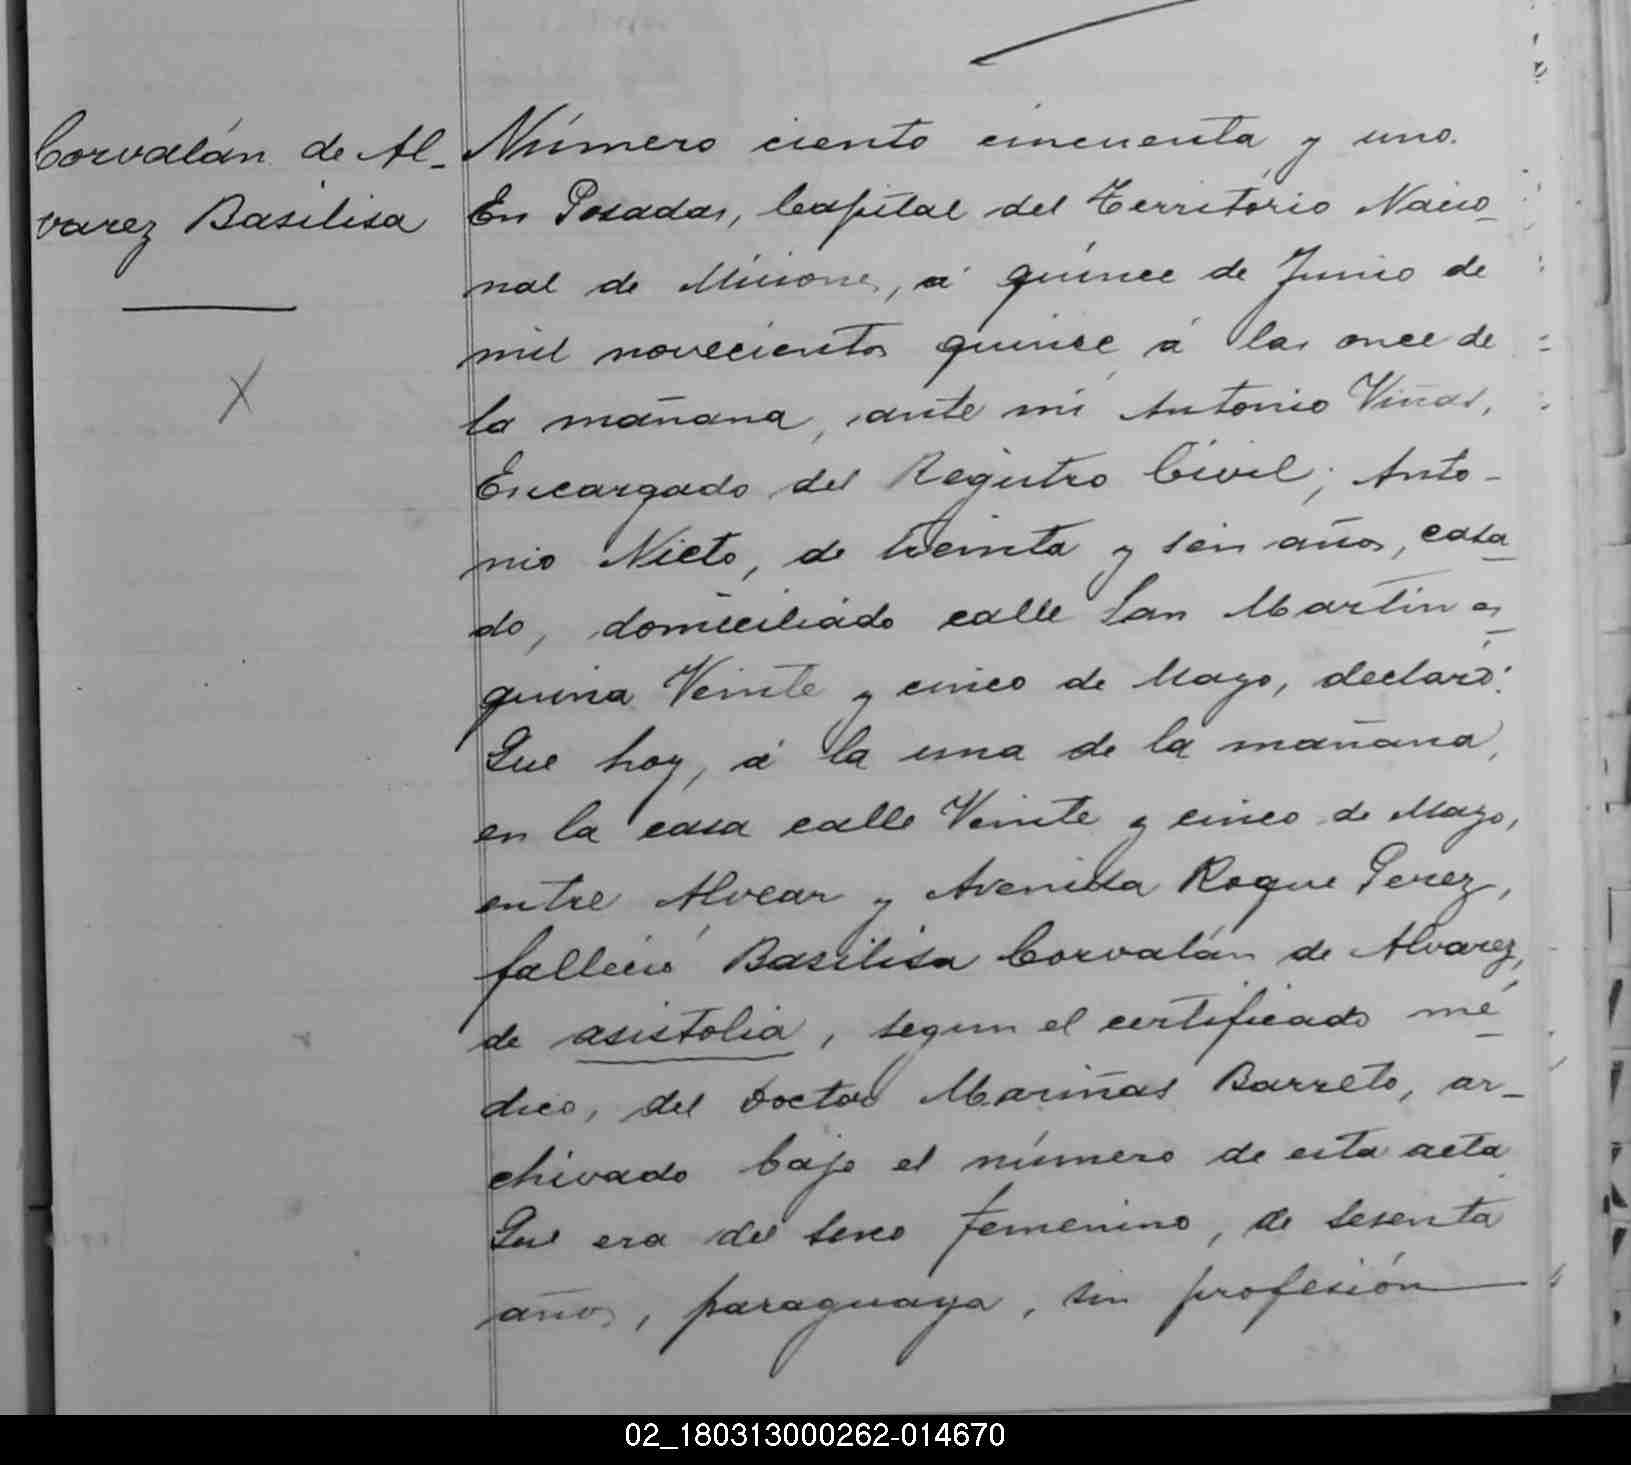 Corvalán de Al-
varez Basilisa
Número ciento cincuenta y uno.
En Posadas, Capital del Territorio Nacio-
nal de Misiones, á quince de Junio de
mil novecientos quince, á las once de
la mañana, ante mi Antonio Viñas,
Encargado del Registro Civil; Anto-
nio Nieto, de treinta y seis años, casa-
do, domiciliado calle San Martin es-
quina Veinte y cinco de Mayo, declaró:
Que hoy, á la una de la mañana,
en la casa calle Veinte y cinco de Mayo,
entre Alvear y Avenida Roque Perez,
falleció Basilisa Corvalán de Alvarez,
de asistolia, segun el certificado mé-
dico, del Doctor Mariñas Barreto, ar-
chivado bajo el número de esta acta
Que era del sexo femenino, de sesenta
años, paraguaya, sin profesión
02_180313000262-014670